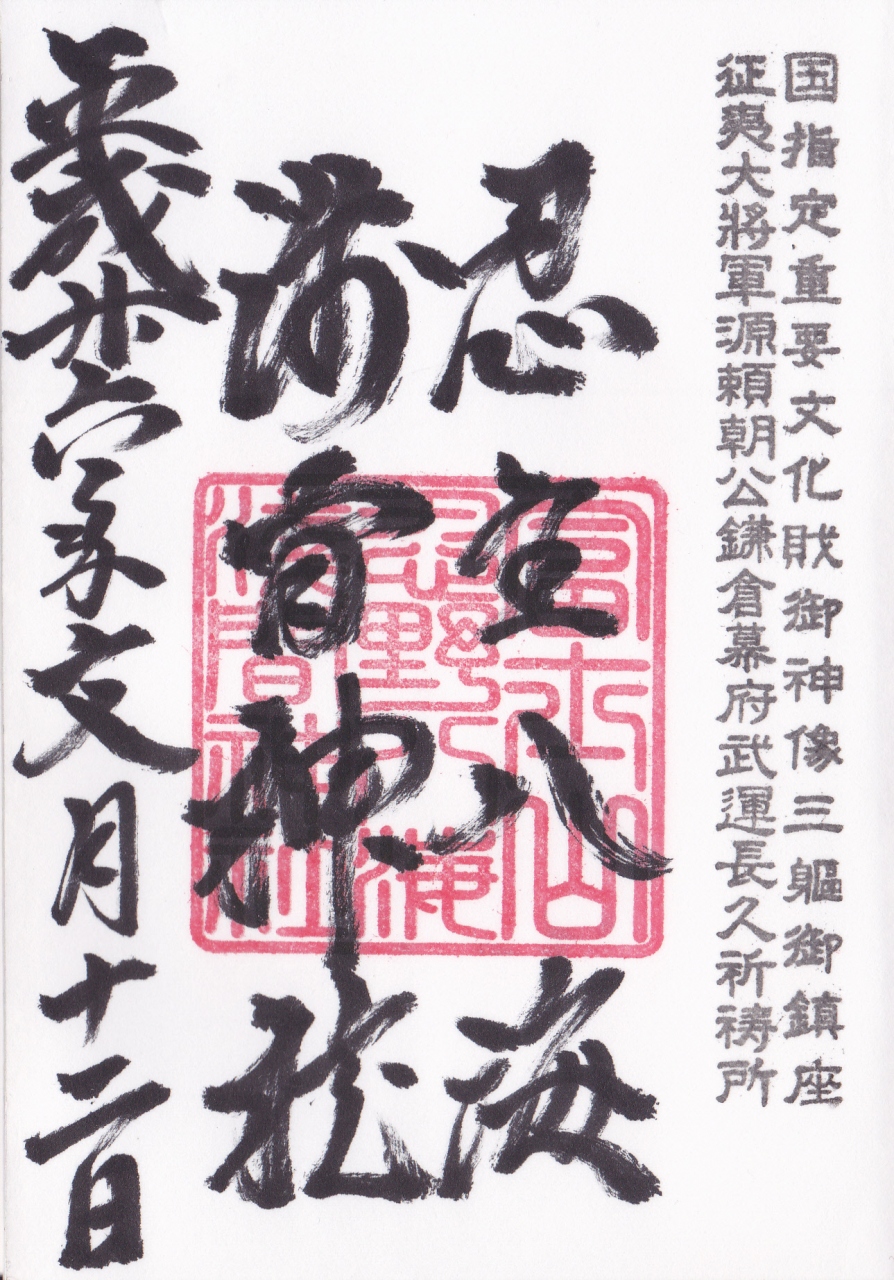 国指定重要文化財御神像三軀御鎮座
征夷大將軍源頼朝公鎌倉幕府武運長久祈祷所
忍野八海
浅間神社
平成廿六年文月十二日
富士山
忍野八海
浅間神社